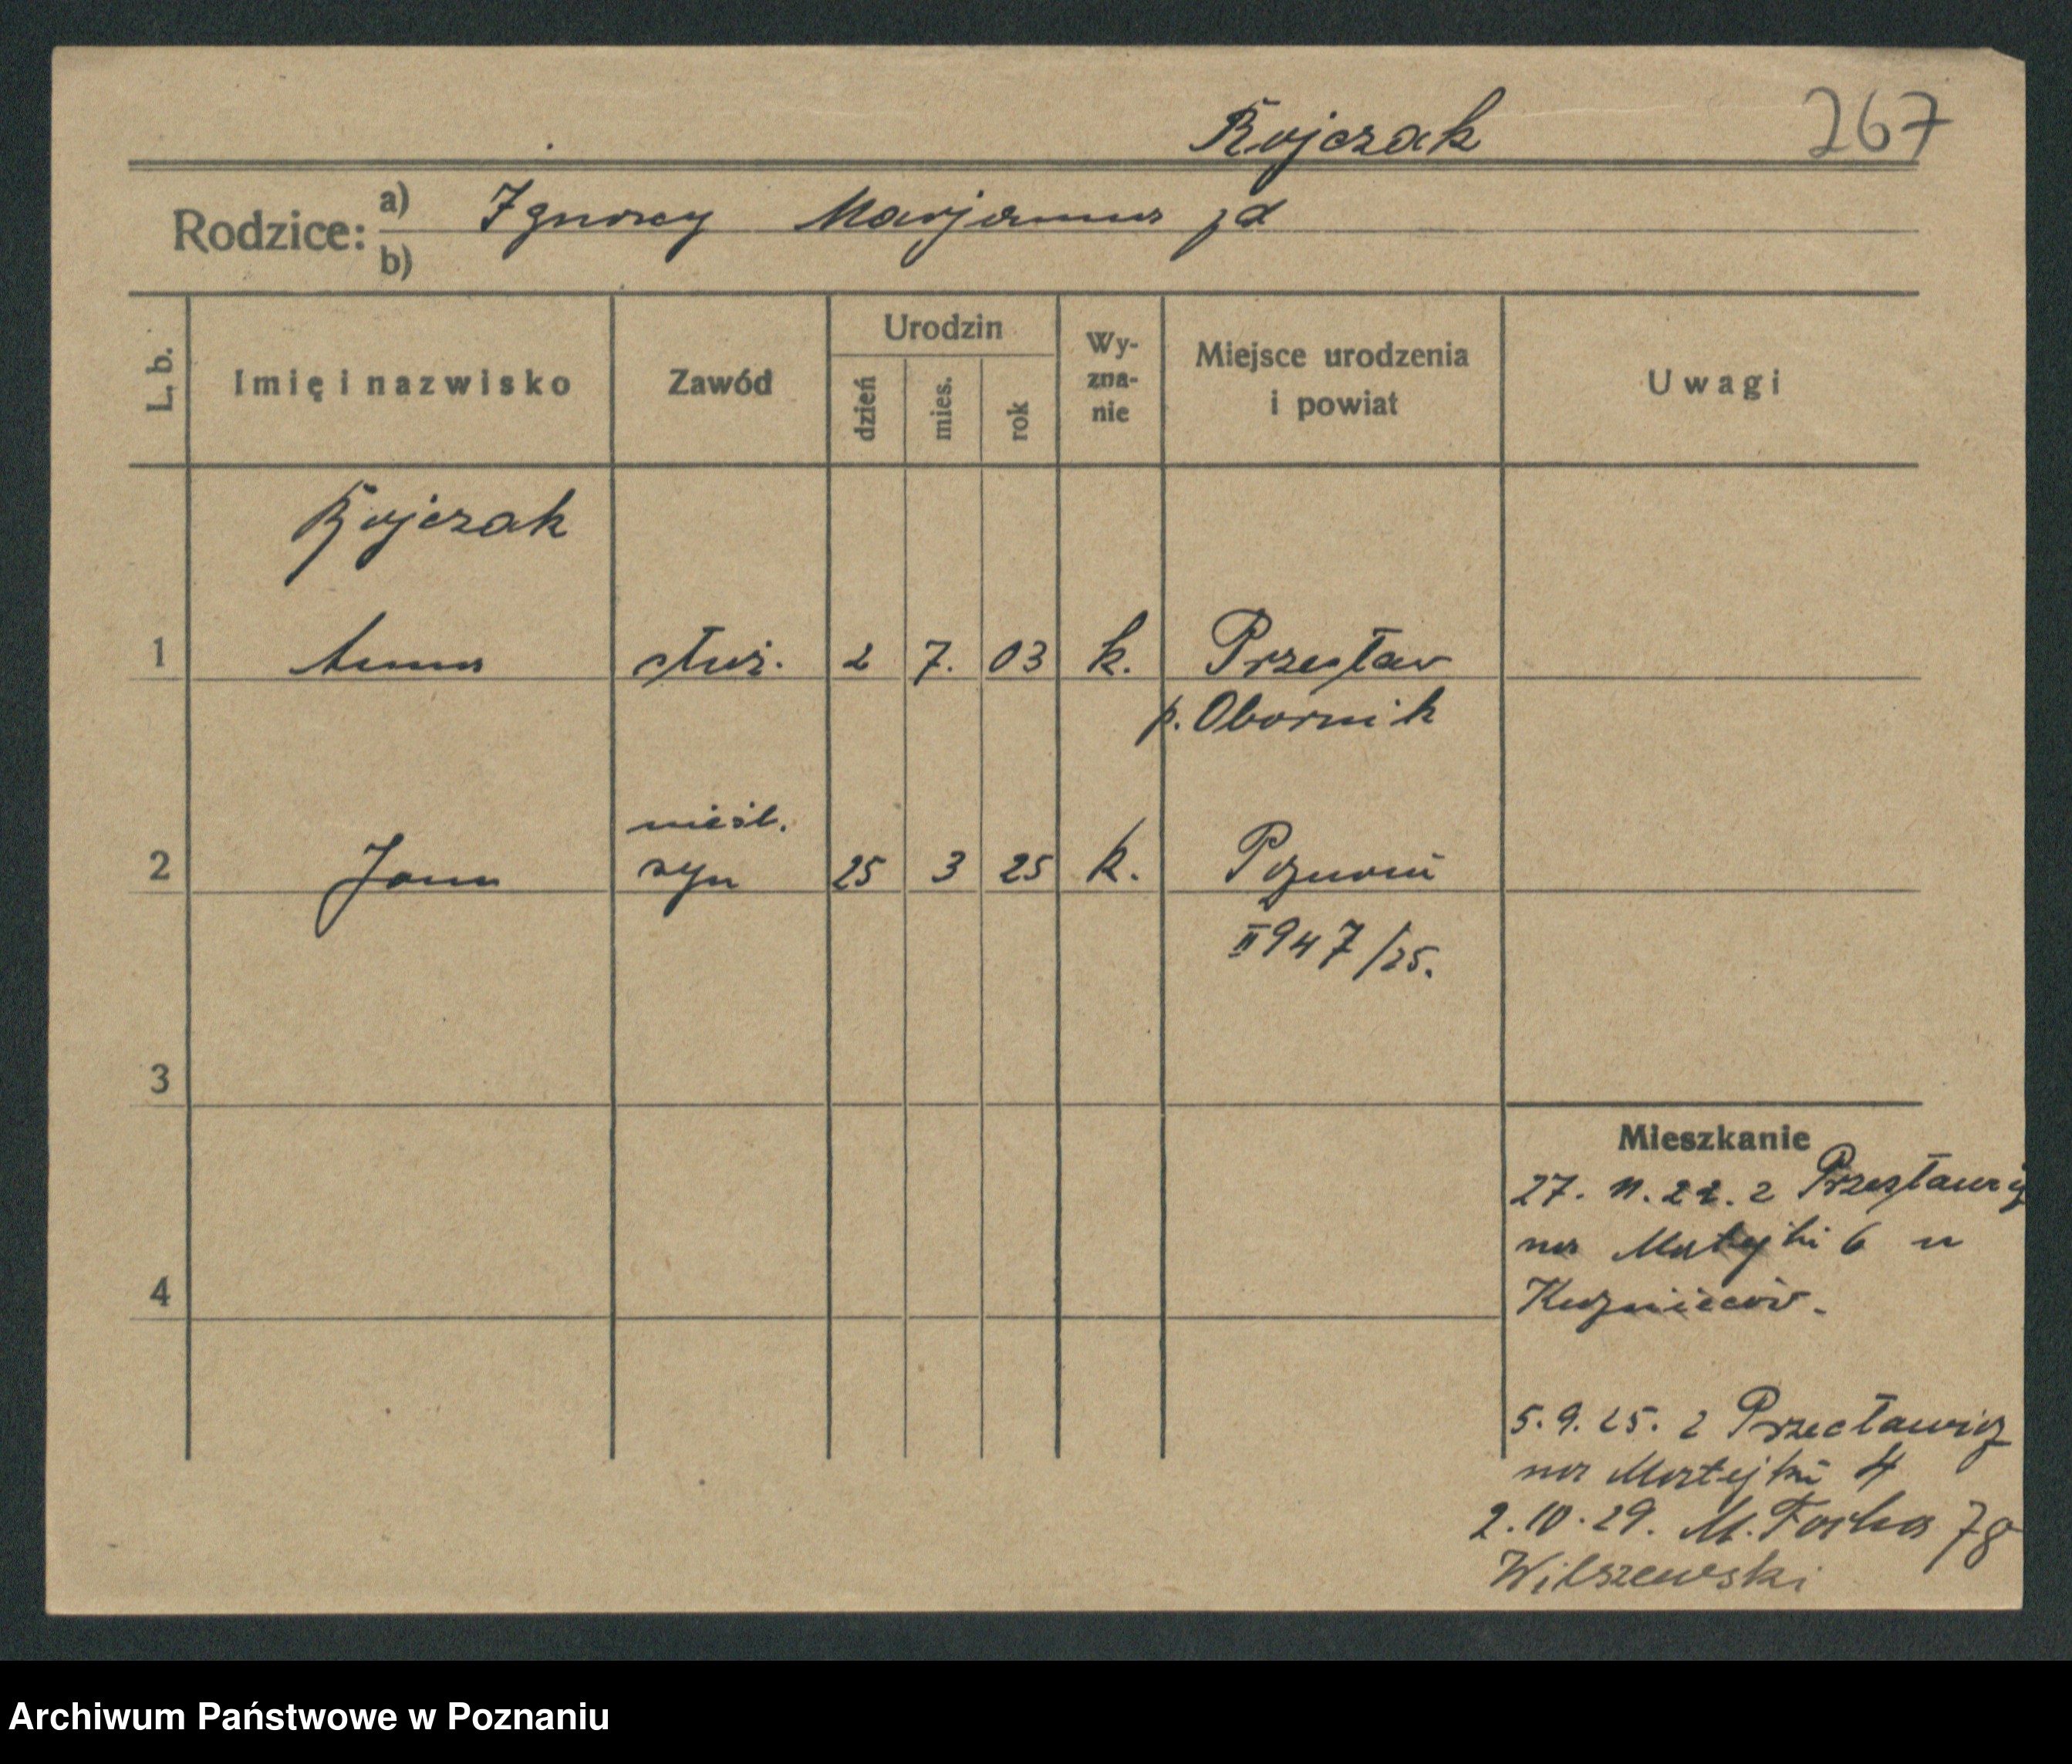 Rojczak 267
Rodzice: a) Ignacy Marjanna
b)
L. b. Imię i nazwisko Zawód Urodzin dzień mies. rok Wy-zna-nie Miejsce urodzenia i powiat Uwagi
Rojczak
1 Anna służ. 2 7. 03 k. Przecław
p. Obornik
nieśl.
2 Jan syn 25 3 25 k. Poznań
II 947/25.
3
4
Mieszkanie
27. 11. 22. z
na Matejki 6 u
5. 9. 25. z Przecławia
na Matejki 4
2. 10. 29. M. Focha 78
Wilszewski
Archiwum Państwowe w Poznaniu